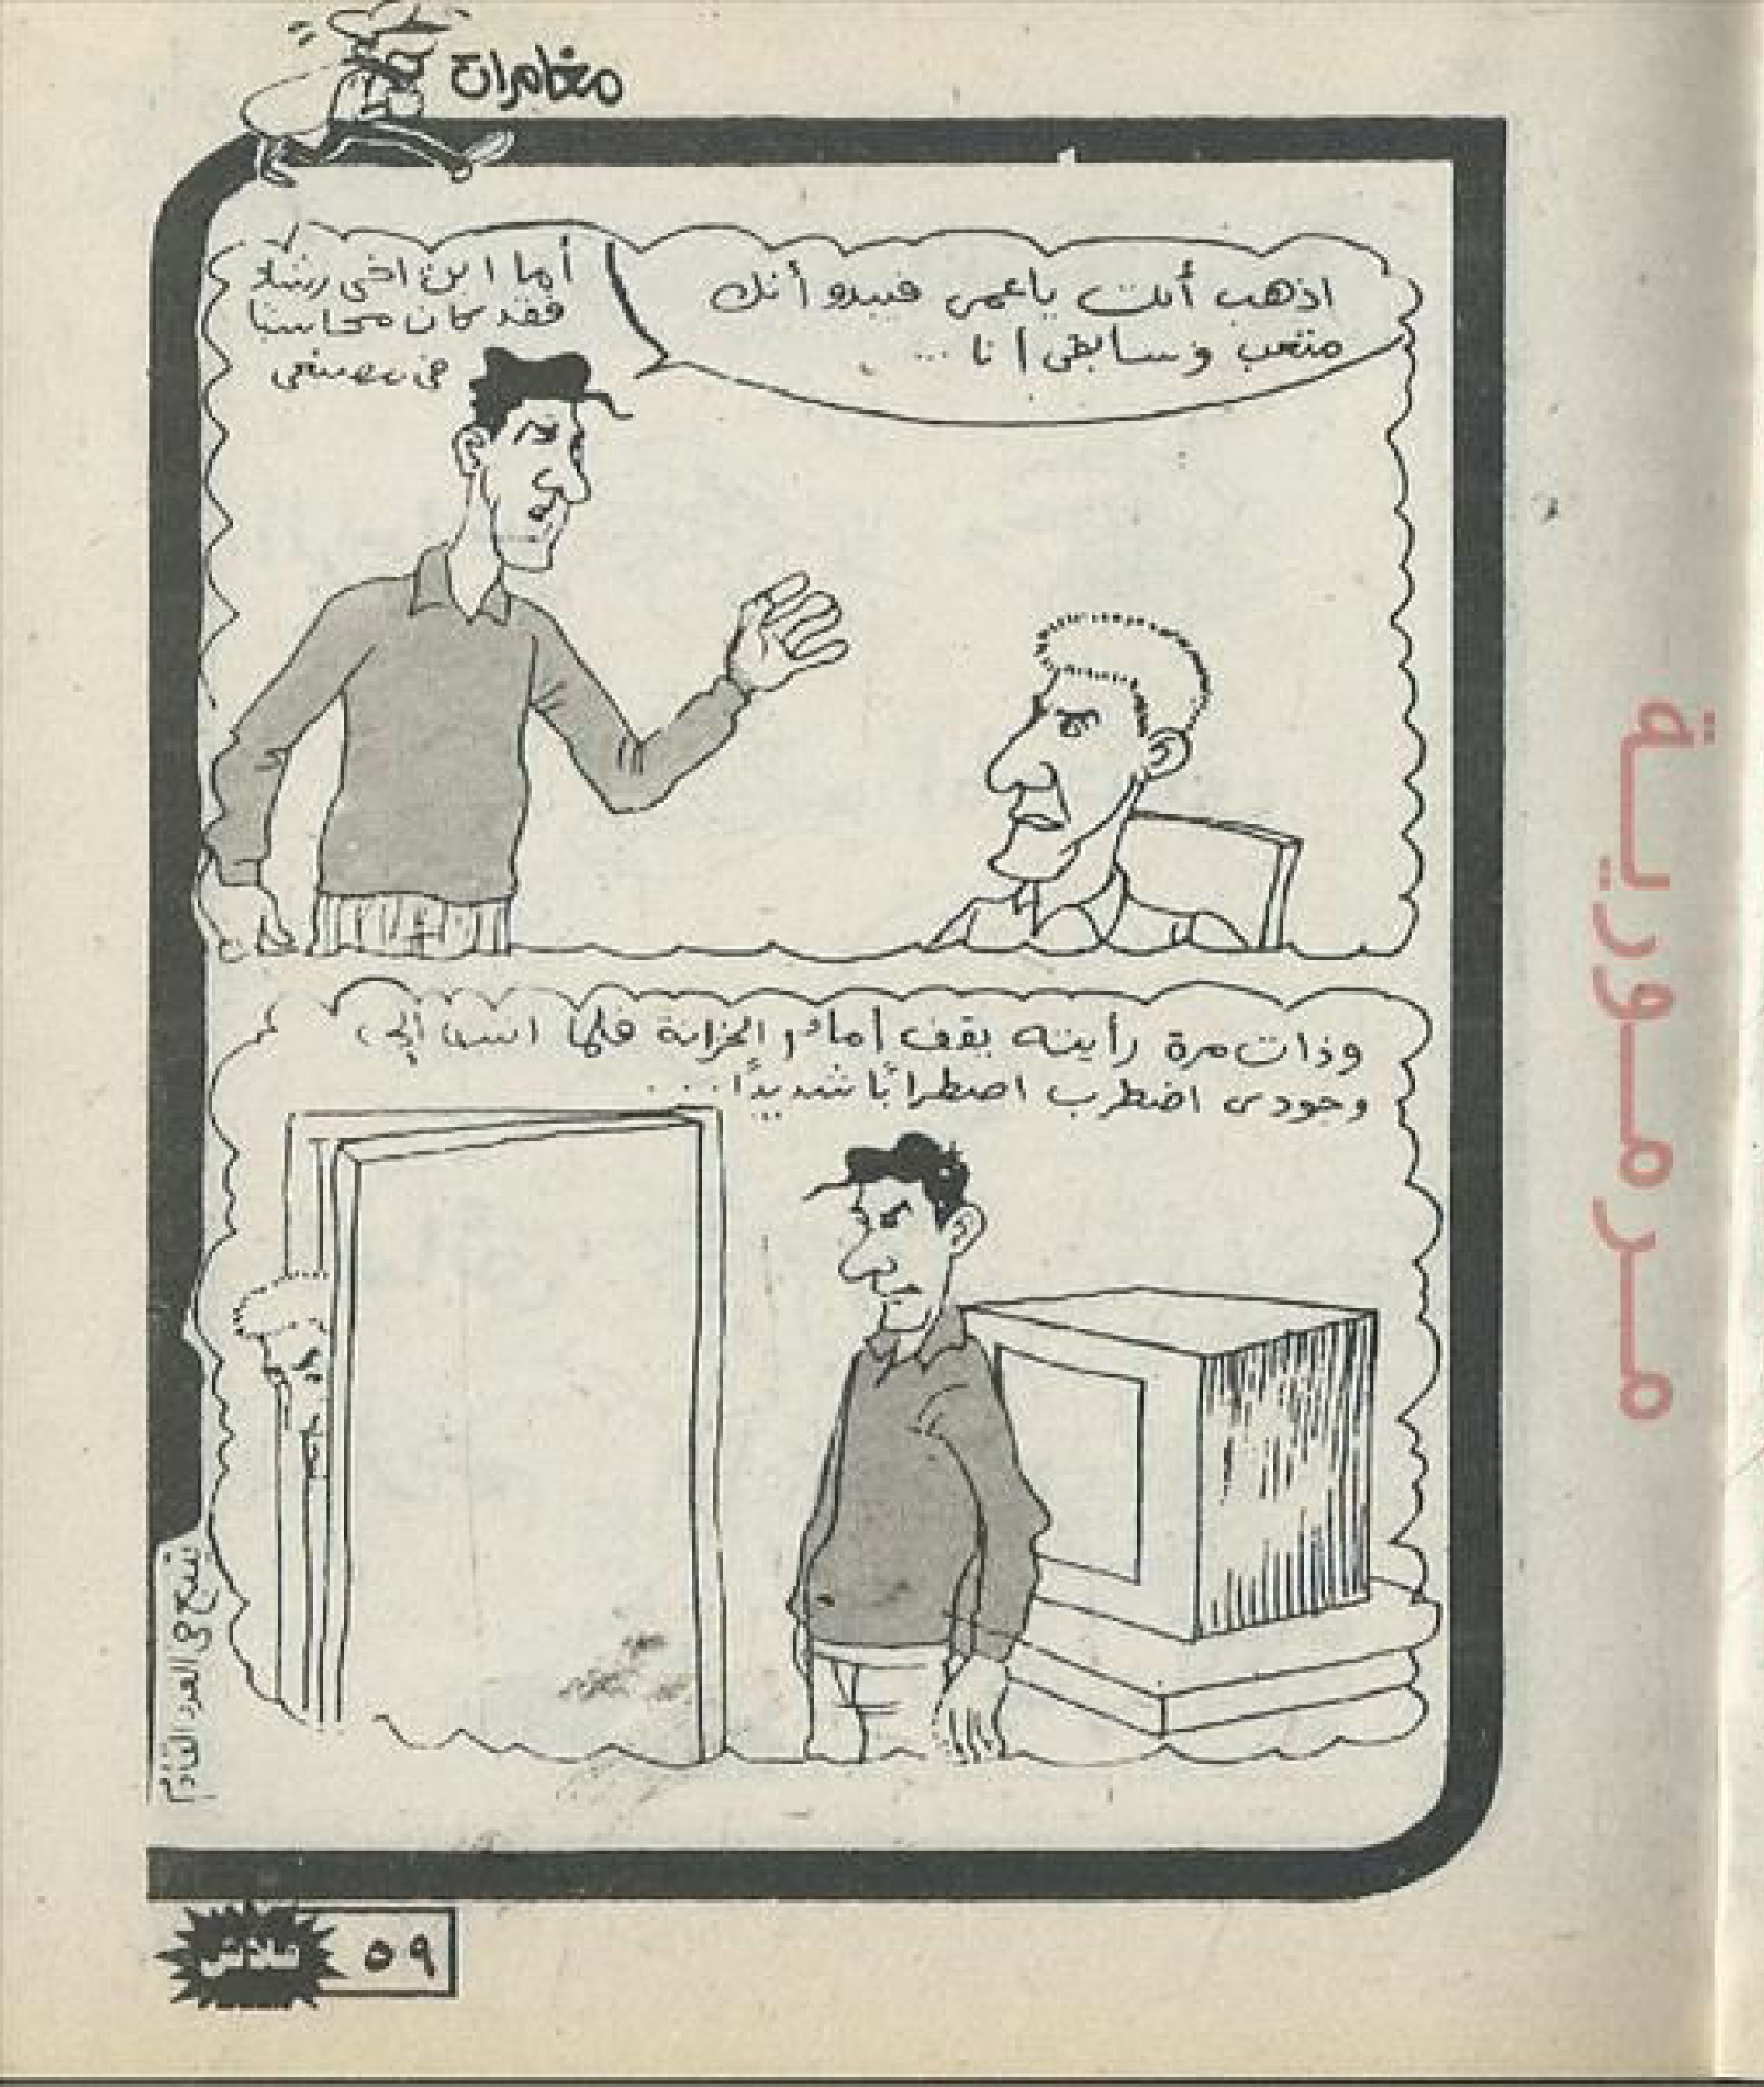 مغامرات
اذهب أنت ياعمى فيبدو أنك
متعب وسابقى أنا ...
أما ابن اخى رشاد
فقد كان محاسبا
فى مصنعى
وذات مرة رأيته يقف أمام الخزانة فلما انتبه إلى
وجودى اضطرب اضطرابًا شديدًا....
يتبع فى العدد القادم
٥٩
فلاش
مرمورية